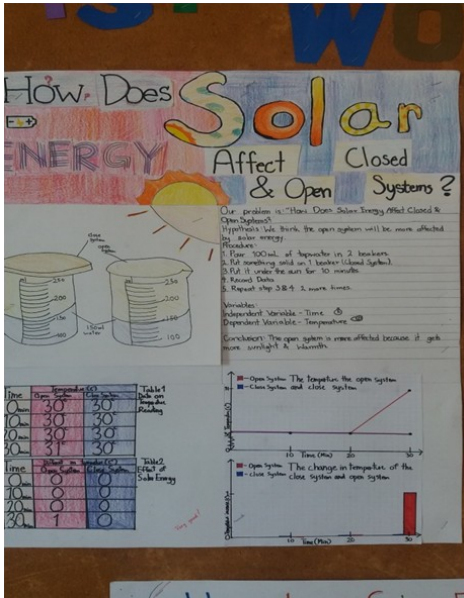 How Does Solar
ENERGY Affect Closed
& Open Systems?
Our problem is: "How Does Solar Energy Affect Closed &
Open Systems?
Hypothesis: We think the open system will be more affected
by solar energy.
Procedure:
1. Poar 300mL of tapwater in 2 beakers.
2. Put something solid on 1 beaker (Closed System).
3. Put it under the sun for 10 minutes
4. Record Data
5. Repeat step 3 & 4 2 more times.
Variables:
Independent Variable - Time
Dependent Variable - Temperature
Conclusion: The open system is more affected because it gets
more sunlight & warmth.
close
system
open
system
250
200
150
100
250
200
150
100
150ml
water
Time Temperatur (C)
Open System Close System
0min 30° 30°
10min 30° 30°
20min 30° 30°
30min 31° 30°
Table 1
Data on
Temperatur
Reading
Time
Open System Close System
0min 0 0
10min 0 0
20min 0 0
30min 1 0
Table 2
Effect of
Solar Energy
Very good!
- Open System The temparture the open system
- Close System and close system
10 20 30
Time (Min)
- Open System The change in temparture of the
- Close System close system and open system
10 20 30
Time (Min)